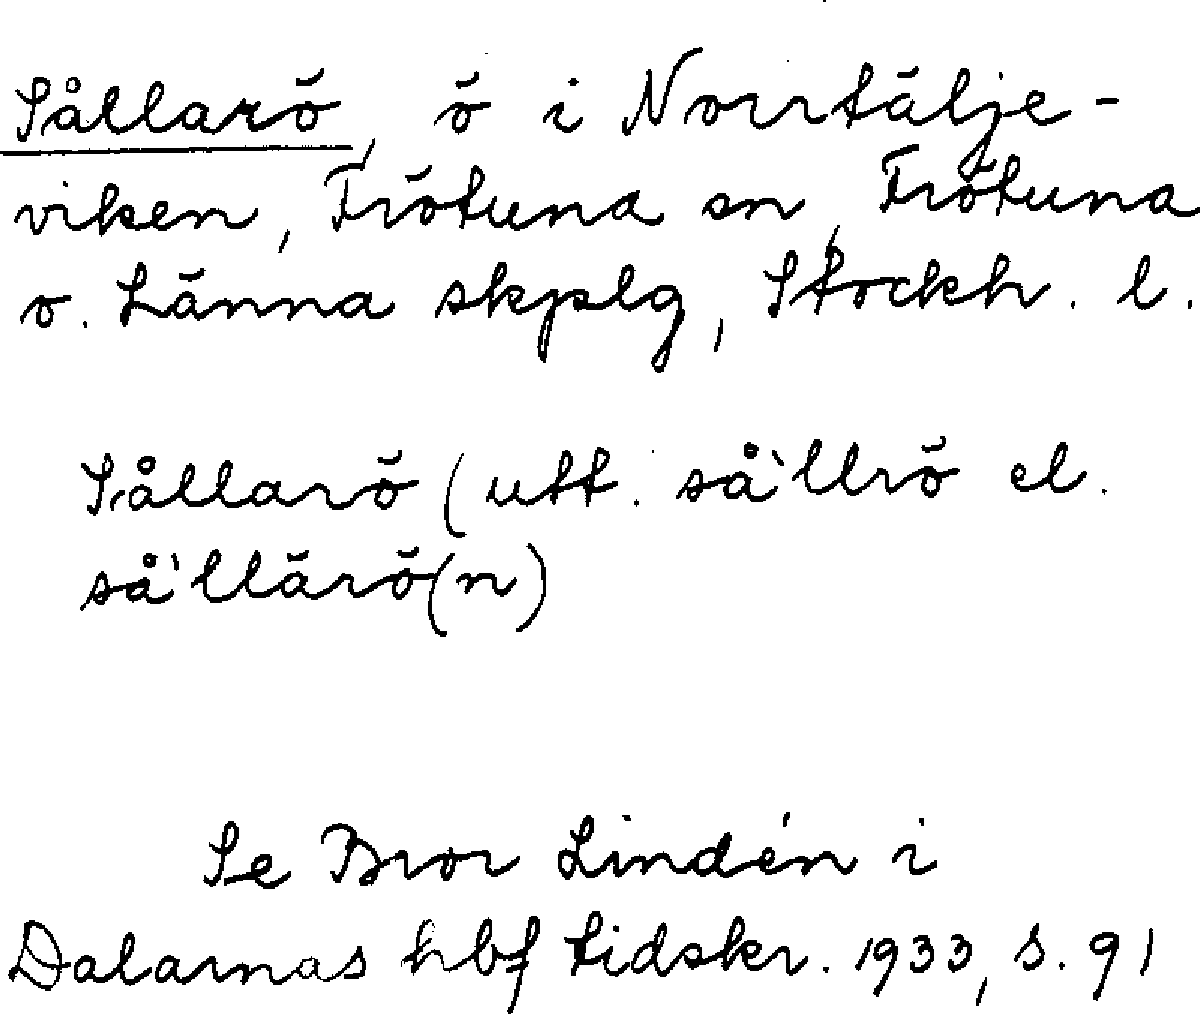 Sållarö, ö i Norrtälje-
viken, Frötuna sn, Frötuna
o. Länna skplg, Stockh. l.
Sållarö (utt. så`llrö el.
så`llärö(n)
Se Bror Lindén i
Dalarnas hbf tidskr. 1933, s. 91